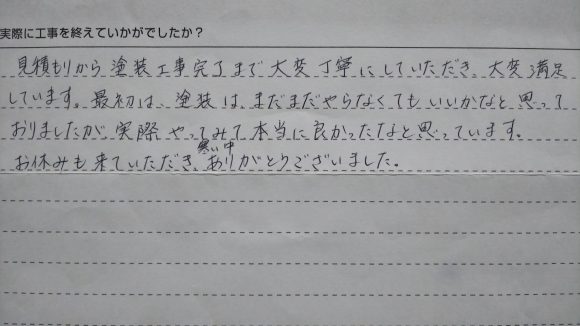 実際に工事を終えていかがでしたか？
見積もりから塗装工事完了まで大変丁寧にしていただき、大変満足
しています。最初は、塗装は、まだまだやらなくてもいいかなと思って
おりましたが、実際やってみて本当に良かったなと思っています。
お休みも来ていただき、寒い中ありがとうございました。